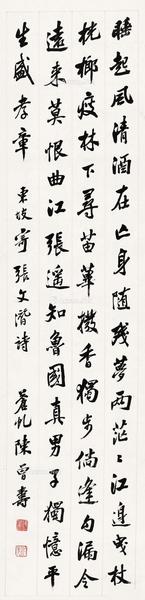 睡起風清酒在亡身隨殘夢兩茫〻江邊曳杖
桄榔瘦林下尋苗蓽撥香獨步倘逢勾漏令
遠來莫恨曲江張遙知魯國真男子獨憶平
生盛孝章 東坡寄張文潛詩 蒼虬陳曾壽